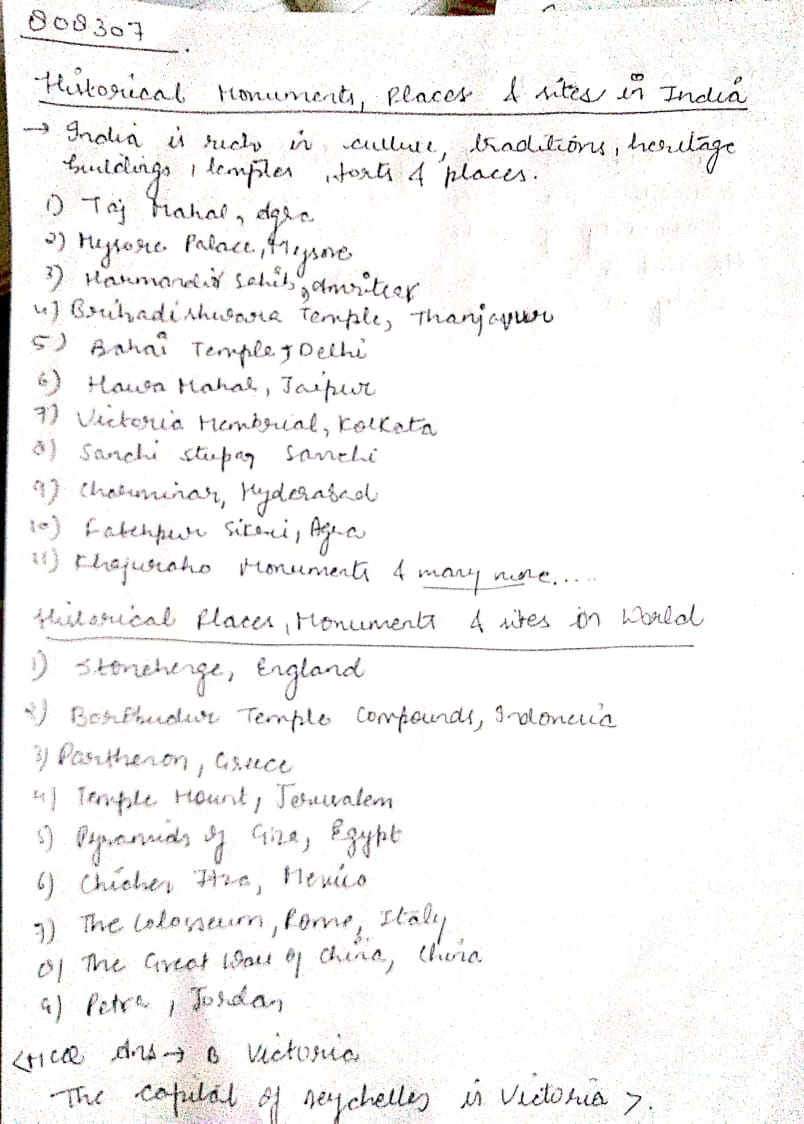 808307
Historical Monuments, Places & sites in India
→ India is rich in culture, traditions, heritage
buildings, temples, forts & places.
1) Taj Mahal, Agra
2) Mysore Palace, Mysore
3) Harmandir Sahib, Amritsar
4) Brihadishwara Temple, Thanjavur
5) Bahai Temple, Delhi
6) Hawa Mahal, Jaipur
7) Victoria Memorial, Kolkata
8) Sanchi stupa, Sanchi
9) Charminar, Hyderabad
10) Fatehpur Sikri, Agra
11) Khajuraho Monuments & many more.....
Historical Places, Monuments & sites in World
1) Stonehenge, England
2) Borobudur Temple Compounds, Indonesia
3) Parthenon, Greece
4) Temple Mount, Jerusalem
5) Pyramids of Giza, Egypt
6) Chichen Itza, Mexico
7) The Colosseum, Rome, Italy
8) The Great Wall of China, China
9) Petra, Jordan
<MCQ Ans → B Victoria
The capital of seychelles is Victoria >.